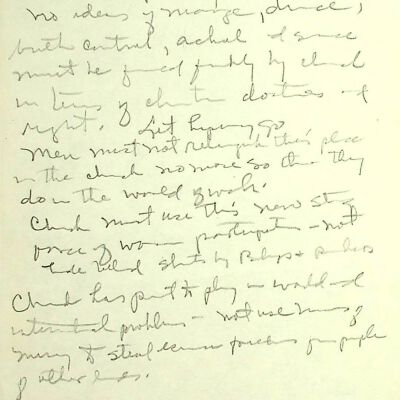 no ideas of marriage, divorce,
birth control, alcohol
must be faced frankly by church
in terms of christian doctrines and
right. Let hypocrisy go
Men must not relinquish their place
in the church no more so than they
do in the world of work.
Church must use this new strong
force of women participation - not
hide behind skirts by Bishops &
Church has part to play in world and
international problems - not use
money to steal from people
of other lands.